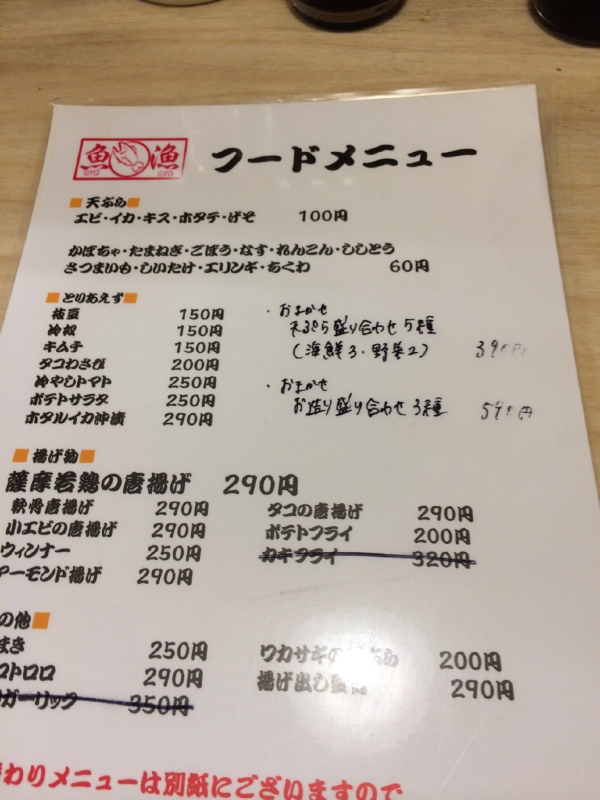 魚 漁
GYO GYO
フードメニュー
■天ぷら■
エビ・イカ・キス・ホタテ・げそ 100円
かぼちゃ・たまねぎ・ごぼう・なす・れんこん・ししとう
さつまいも・しいたけ・エリンギ・ちくわ 60円
■とりあえず■
枝豆 150円
冷奴 150円
キムチ 150円
タコわさび 200円
冷やしトマト 250円
ポテトサラダ 250円
ホタルイカ沖漬 290円
・おまかせ
天ぷら盛り合わせ5種
(海鮮3・野菜2) 390円
・おまかせ
お造り盛り合わせ3種 590円
■揚げ物■
薩摩若鶏の唐揚げ 290円
軟骨唐揚げ 290円
小エビの唐揚げ 290円
ウィンナー 250円
アーモンド揚げ 290円
タコの唐揚げ 290円
ポテトフライ 200円
カキフライ 320円
の他■
まき 250円
トロロ 290円
ガーリック 350円
ワカサギの 200円
揚げ出し 290円
わりメニューは別紙にございますので